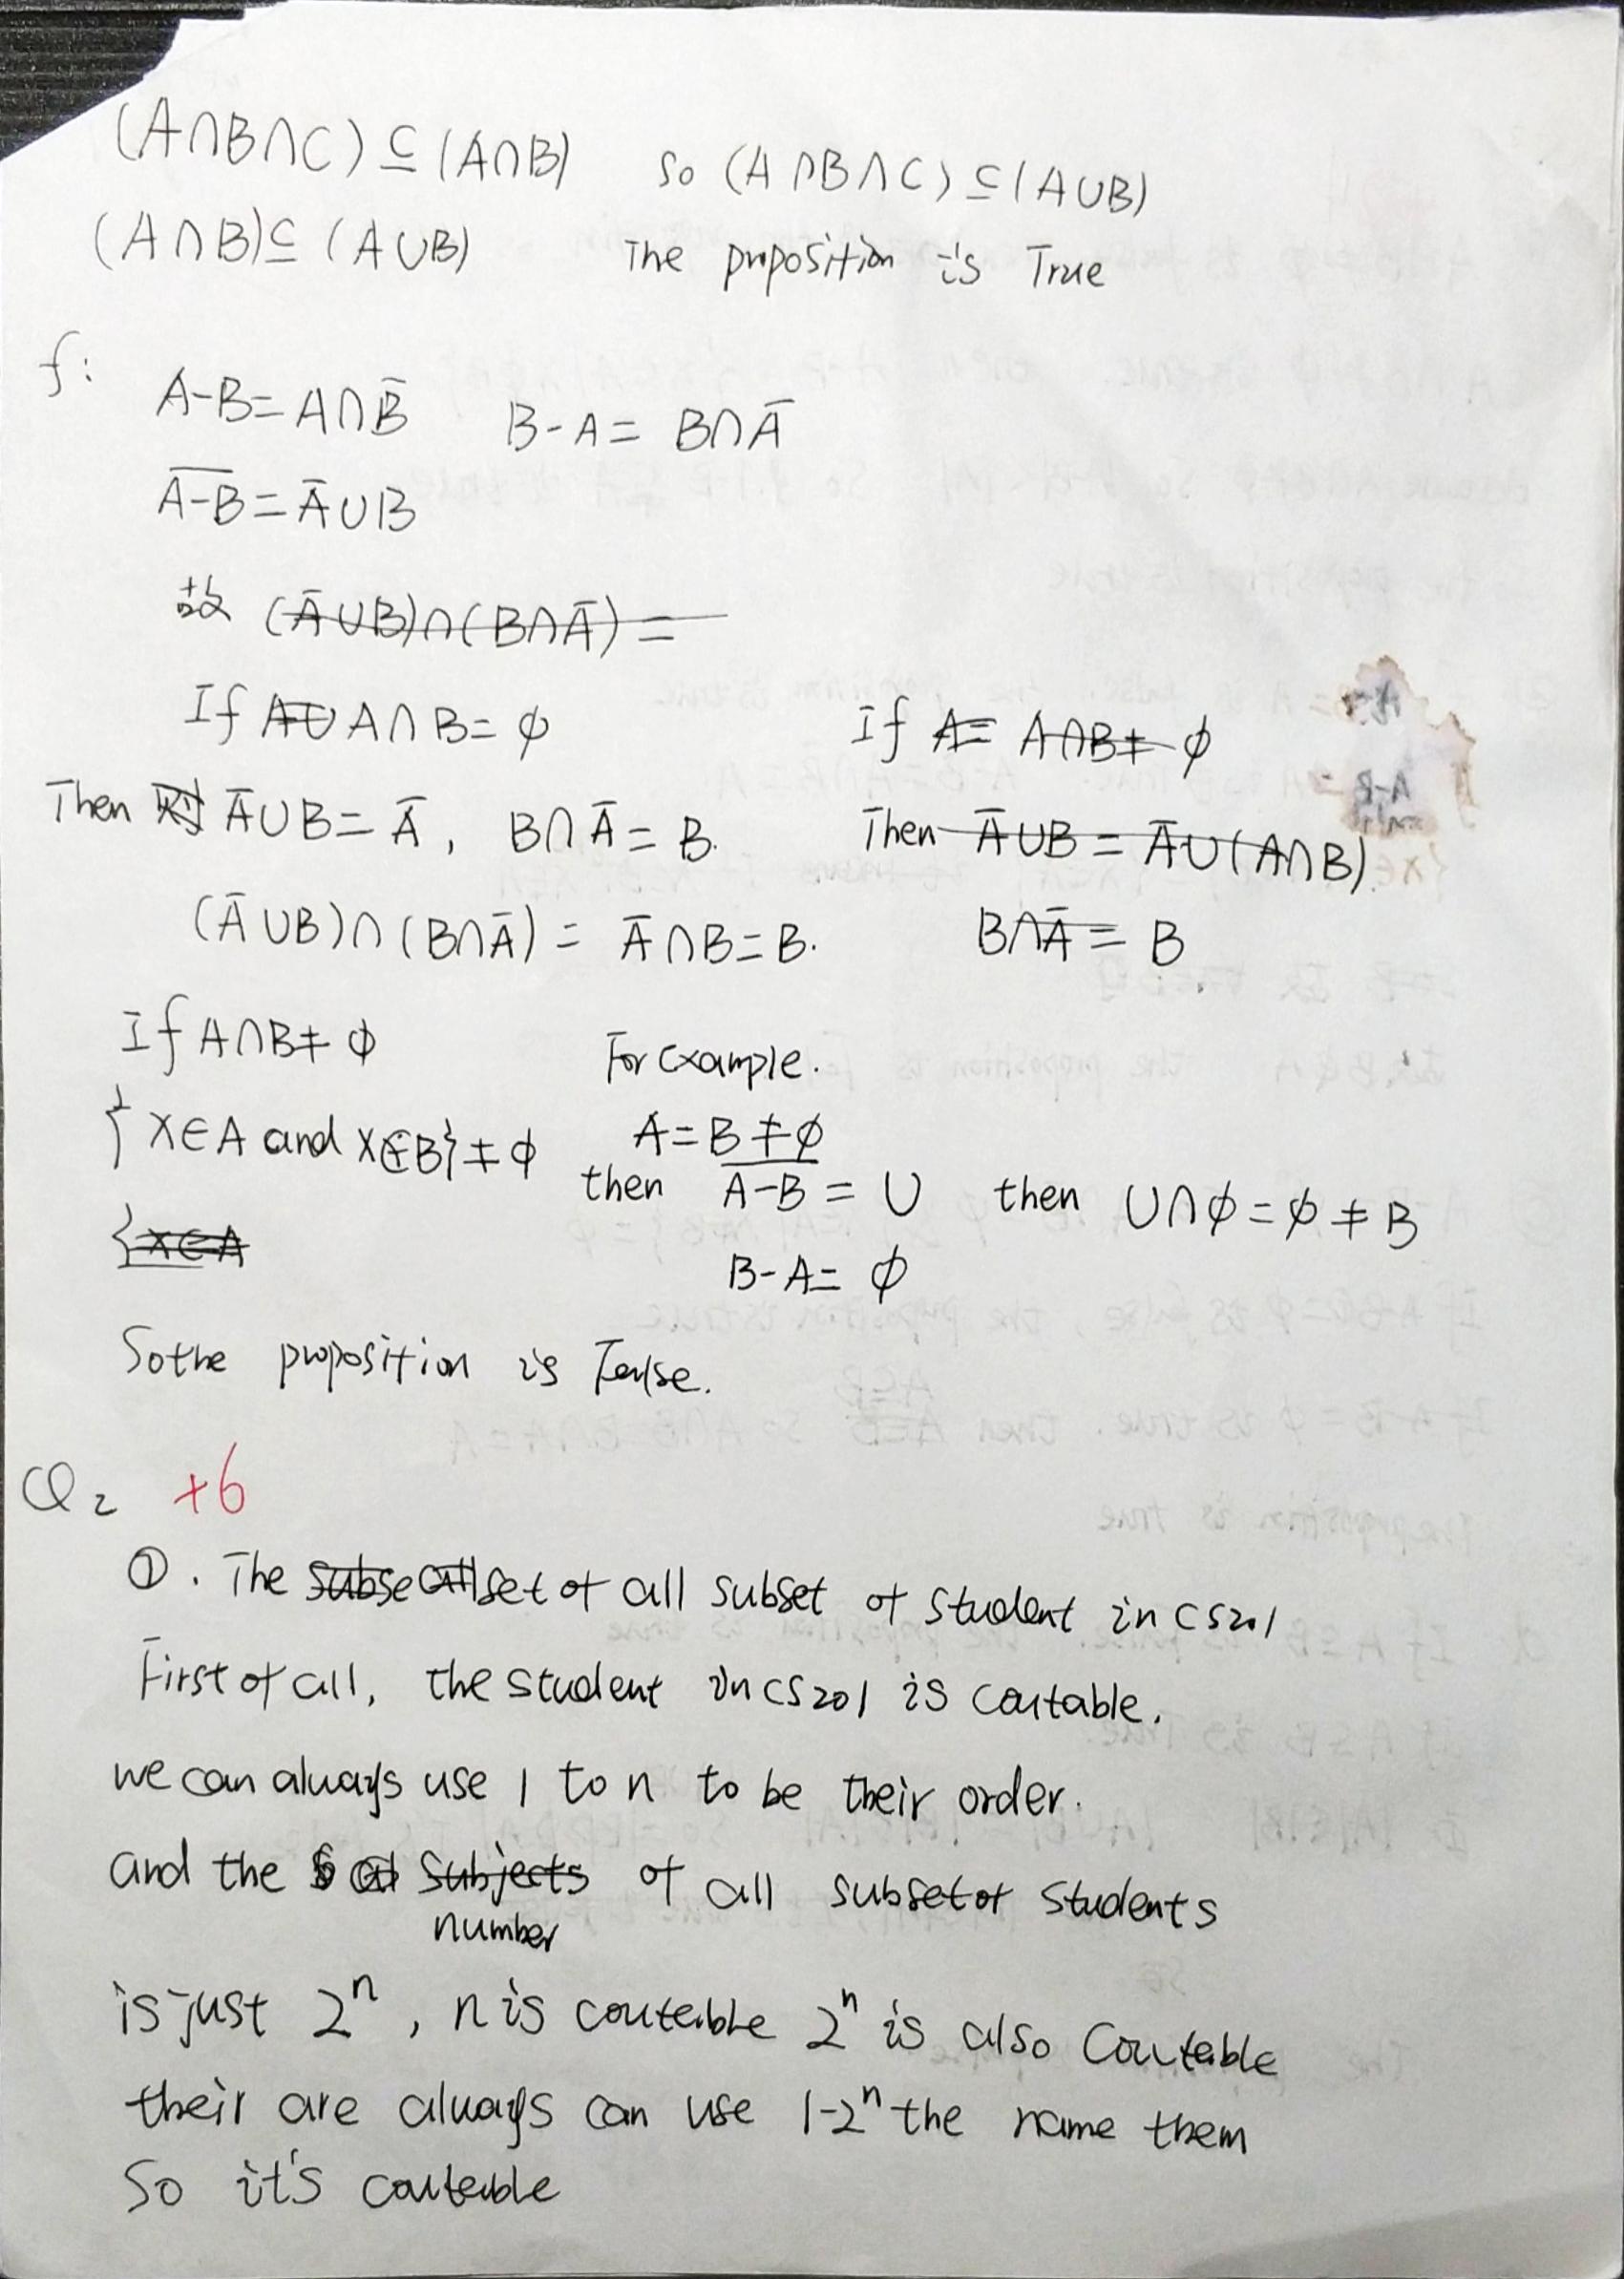 (A∩B∩C) ⊆ (A∩B) so (A∩B∩C) ⊆ (A∪B)
(A∩B) ⊆ (A∪B) The proposition is True
f:
A-B = A∩B̅ B-A = B∩A̅
\overline{A-B} = A̅∪B
故 (A̅∪B)∩(B∩A̅) =
If A∪ A∩B = ϕ
Then 则 A̅∪B = A̅, B∩A̅ = B.
(A̅∪B)∩(B∩A̅) = A̅∩B = B.
If A= A∩B ≠ ϕ
Then A̅∪B = A̅∪(A∩B).
B∩A̅ = B
If A∩B ≠ ϕ
{x∈A and x∈B} ≠ ϕ
{x∈A
For example.
A = B ≠ ϕ
then \overline{A-B} = U then U∩ϕ = ϕ ≠ B
B-A = ϕ
So the proposition is False.
Q2 +6
①. The subse all set of all subset of student in CS201
First of all, the student in CS201 is coutable.
we can always use 1 to n to be their order.
and the subjects of all subset of students
number
is just 2ⁿ, n is couteible 2ⁿ is also Coutable
their are always can use 1-2ⁿ the name them
So it's couteble